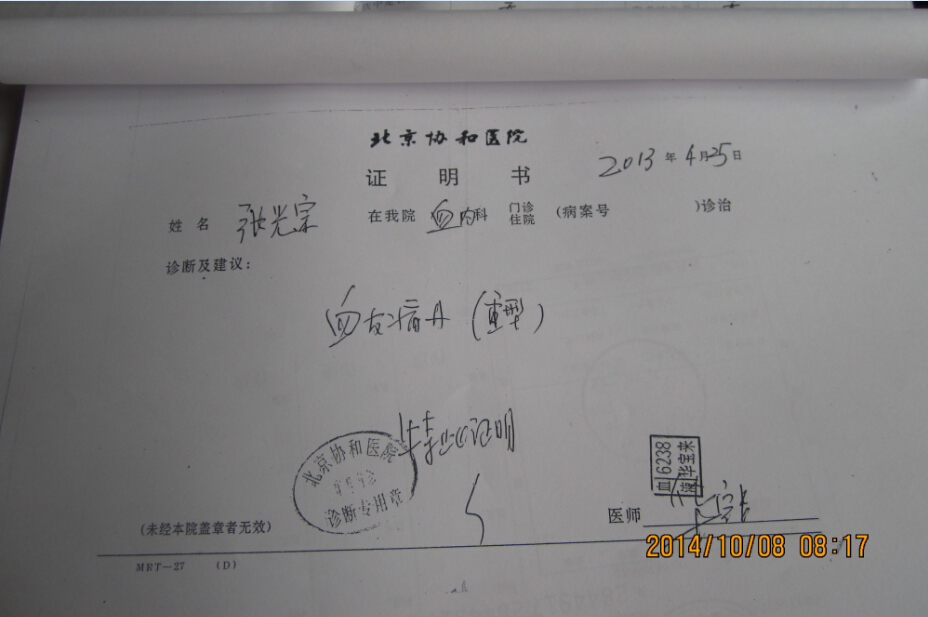 北京协和医院
证 明 书
2013年4月25日
姓 名 张光宗 在我院 血内科 门诊 住院 (病案号 )诊治
诊断及建议:
血友病A (重型)
特此证明
北京协和医院
诊断专用章
血 6238
华宝来
(未经本院盖章者无效)
医师
MRT—27 (D)
2014/10/08 08:17